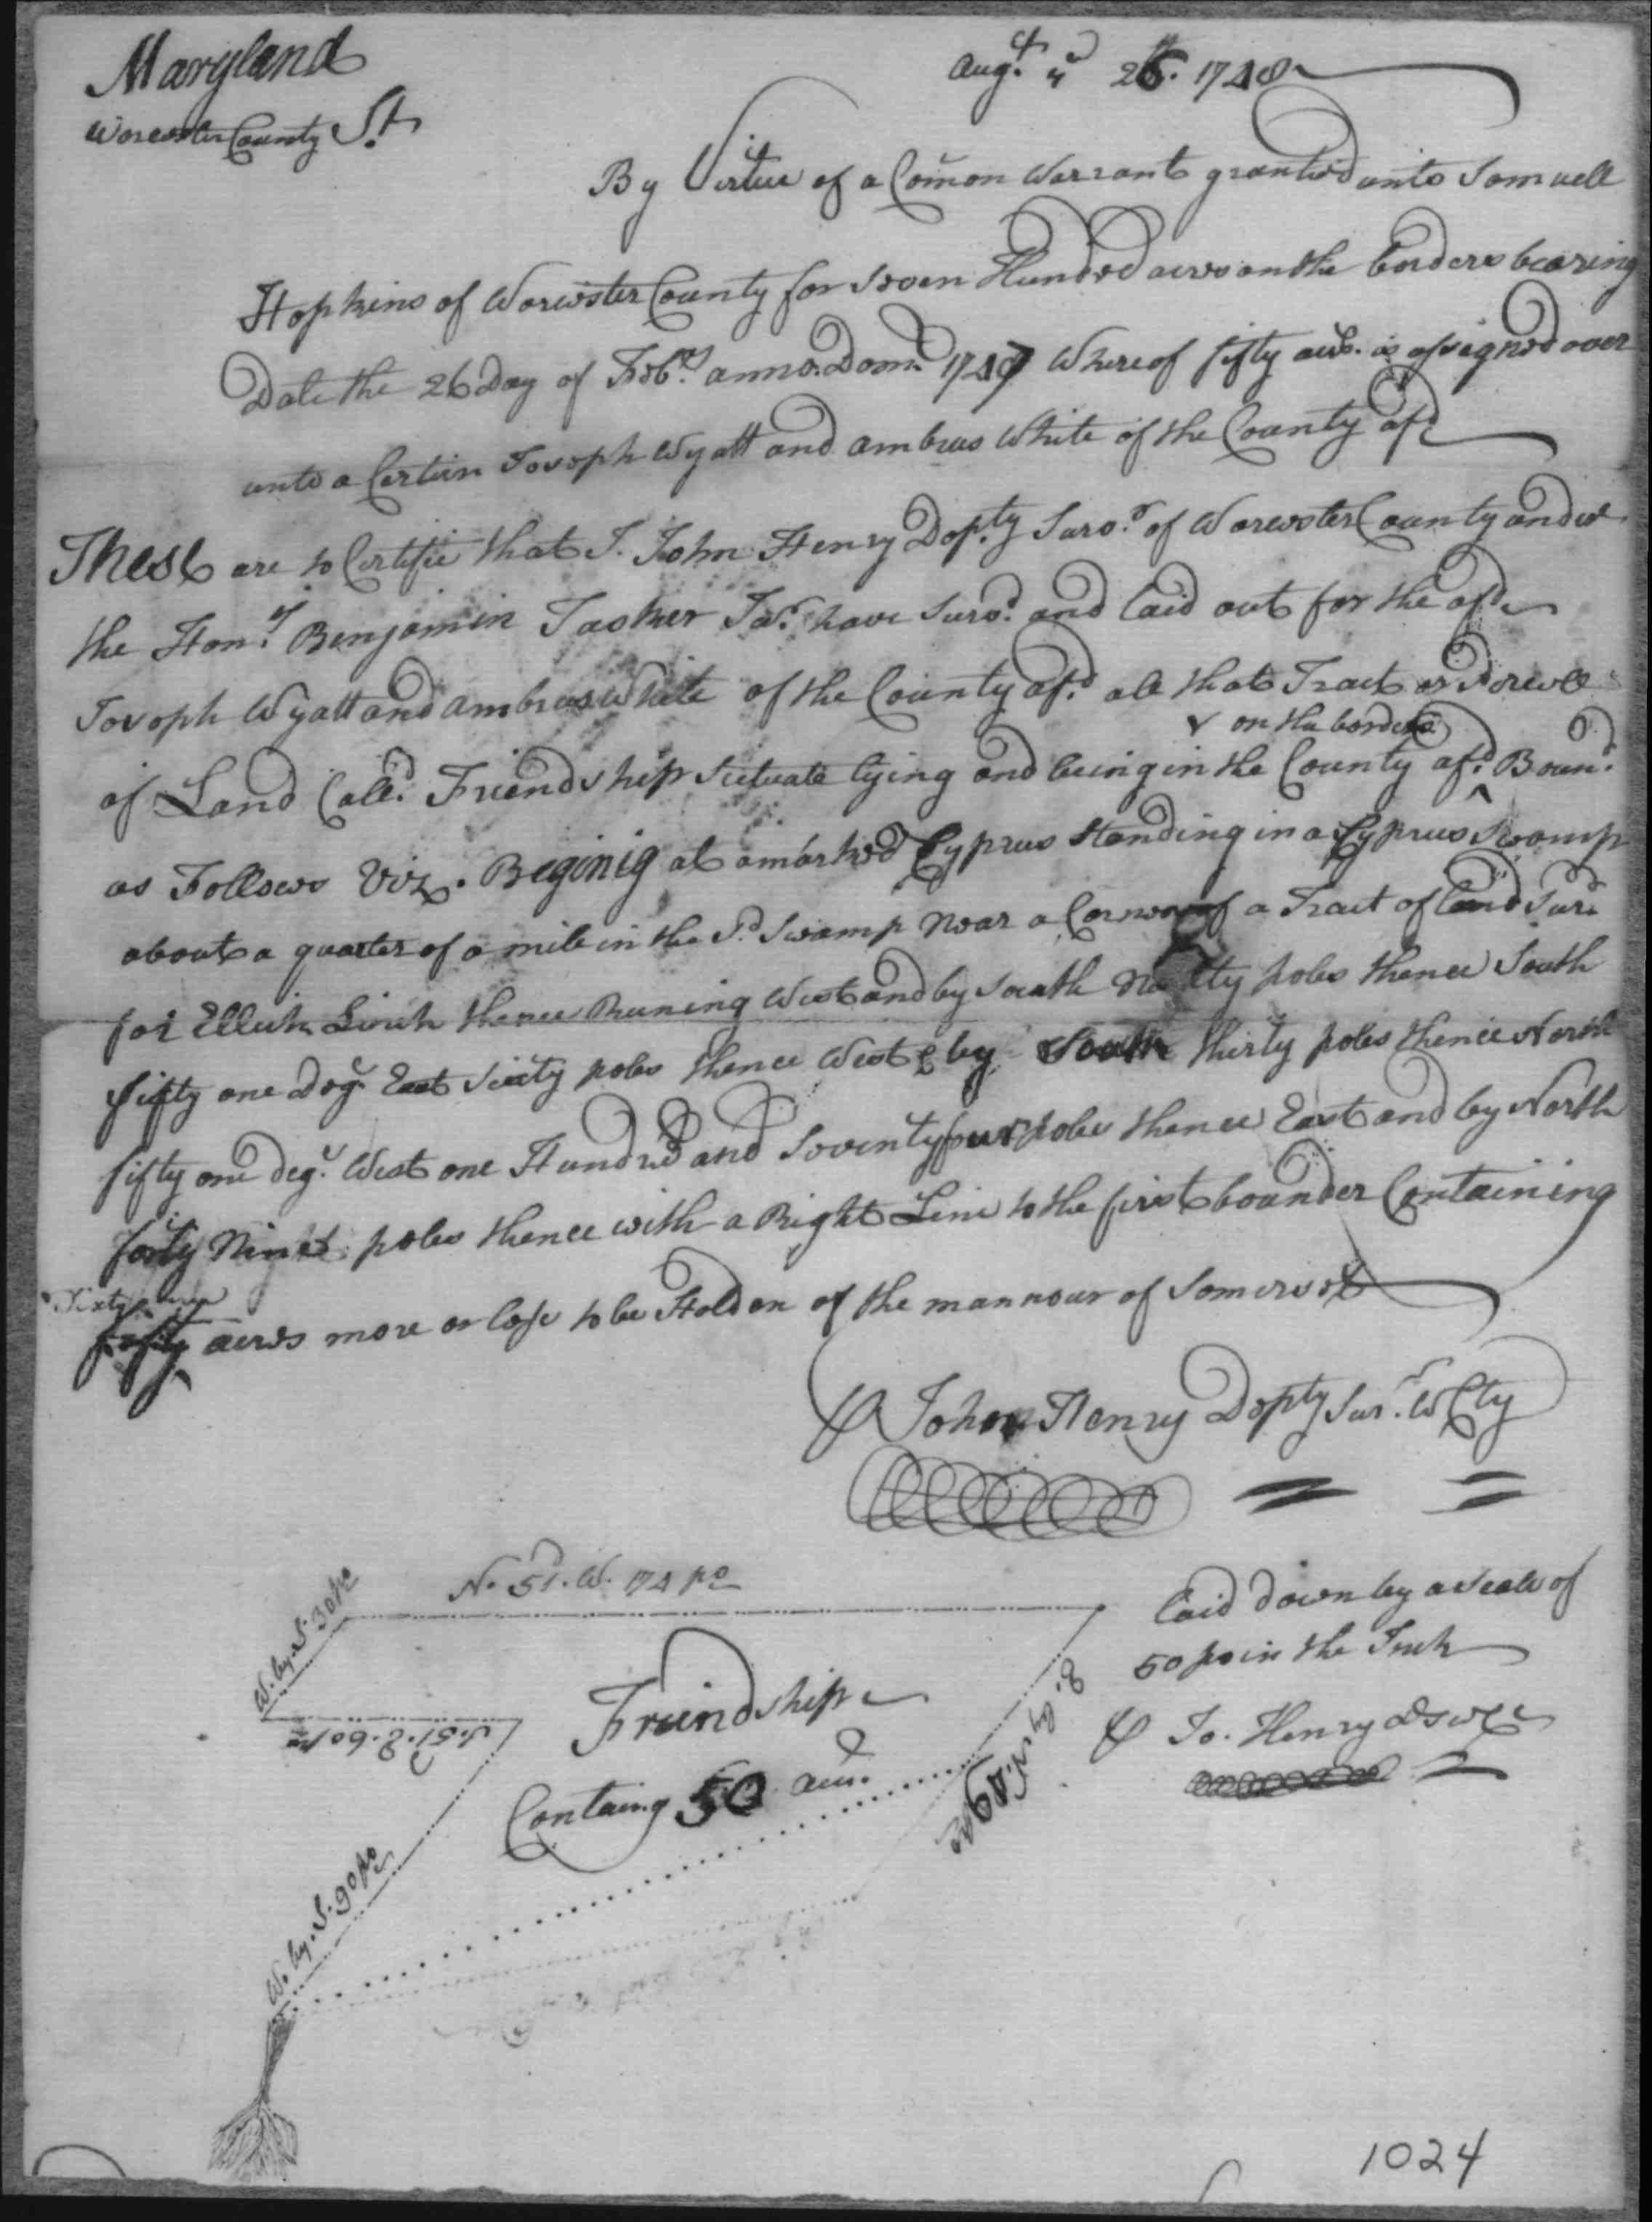 Maryland
Worcester County Sc.t
Aug.st ye 26th. 1748
By Virtue of a Com̄on Warrant granted unto Samuell
Hopkins of Worcester County for Seven Hundred acres on the borders bearing
Date the 26 Day of Feb.ry anno. Dom. 1747 Whereof fifty acrs. is assigned over
unto a Certain Joseph Wyatt and Ambrus White of the County afd.
These are to Certifie that I. John Henry Dep.ty Surv.r of Worcester County under
the Hon.r Benjamin Tasker Esq.r have Surv.d and laid out for the afd.
Joseph Wyatt and Ambrus White of the County afd. all that Tract or Parcell
v on the borders
of Land Call.d Friendship Scituate lying and being in the County afd. ^ Boun.d
as Follows Viz. Beginig at a marked Cyprus Standing in a Cyprus Swamp
about a quarter of a mile in the Sd. Swamp Near a Corner of a Tract of land Sur.d
for Ellick Linch thence Runing West and by South Ninety poles thence South
fifty one Deg.s East Sixty poles thence West & by South thirty poles thence North
fifty one deg.s West one Hundred and Seventy four poles thence East and by North
forty Nine poles thence with a Right Line to the first bounder Containing
Sixty
fifty acres more or less to be Holden of the mannour of Somerset
⅌ John Henry Depty Sur.r W Cty
N. 51. W. 174 po
W. by. S. 30 po
S. 51. E. 60 po
Friendship
Containg 50 acrs.
E. by N. 49 po
W. by. S. 90 po
Laid down by a Scale of
50 po in the Inch
⅌ Jo. Henry DSWC
1024